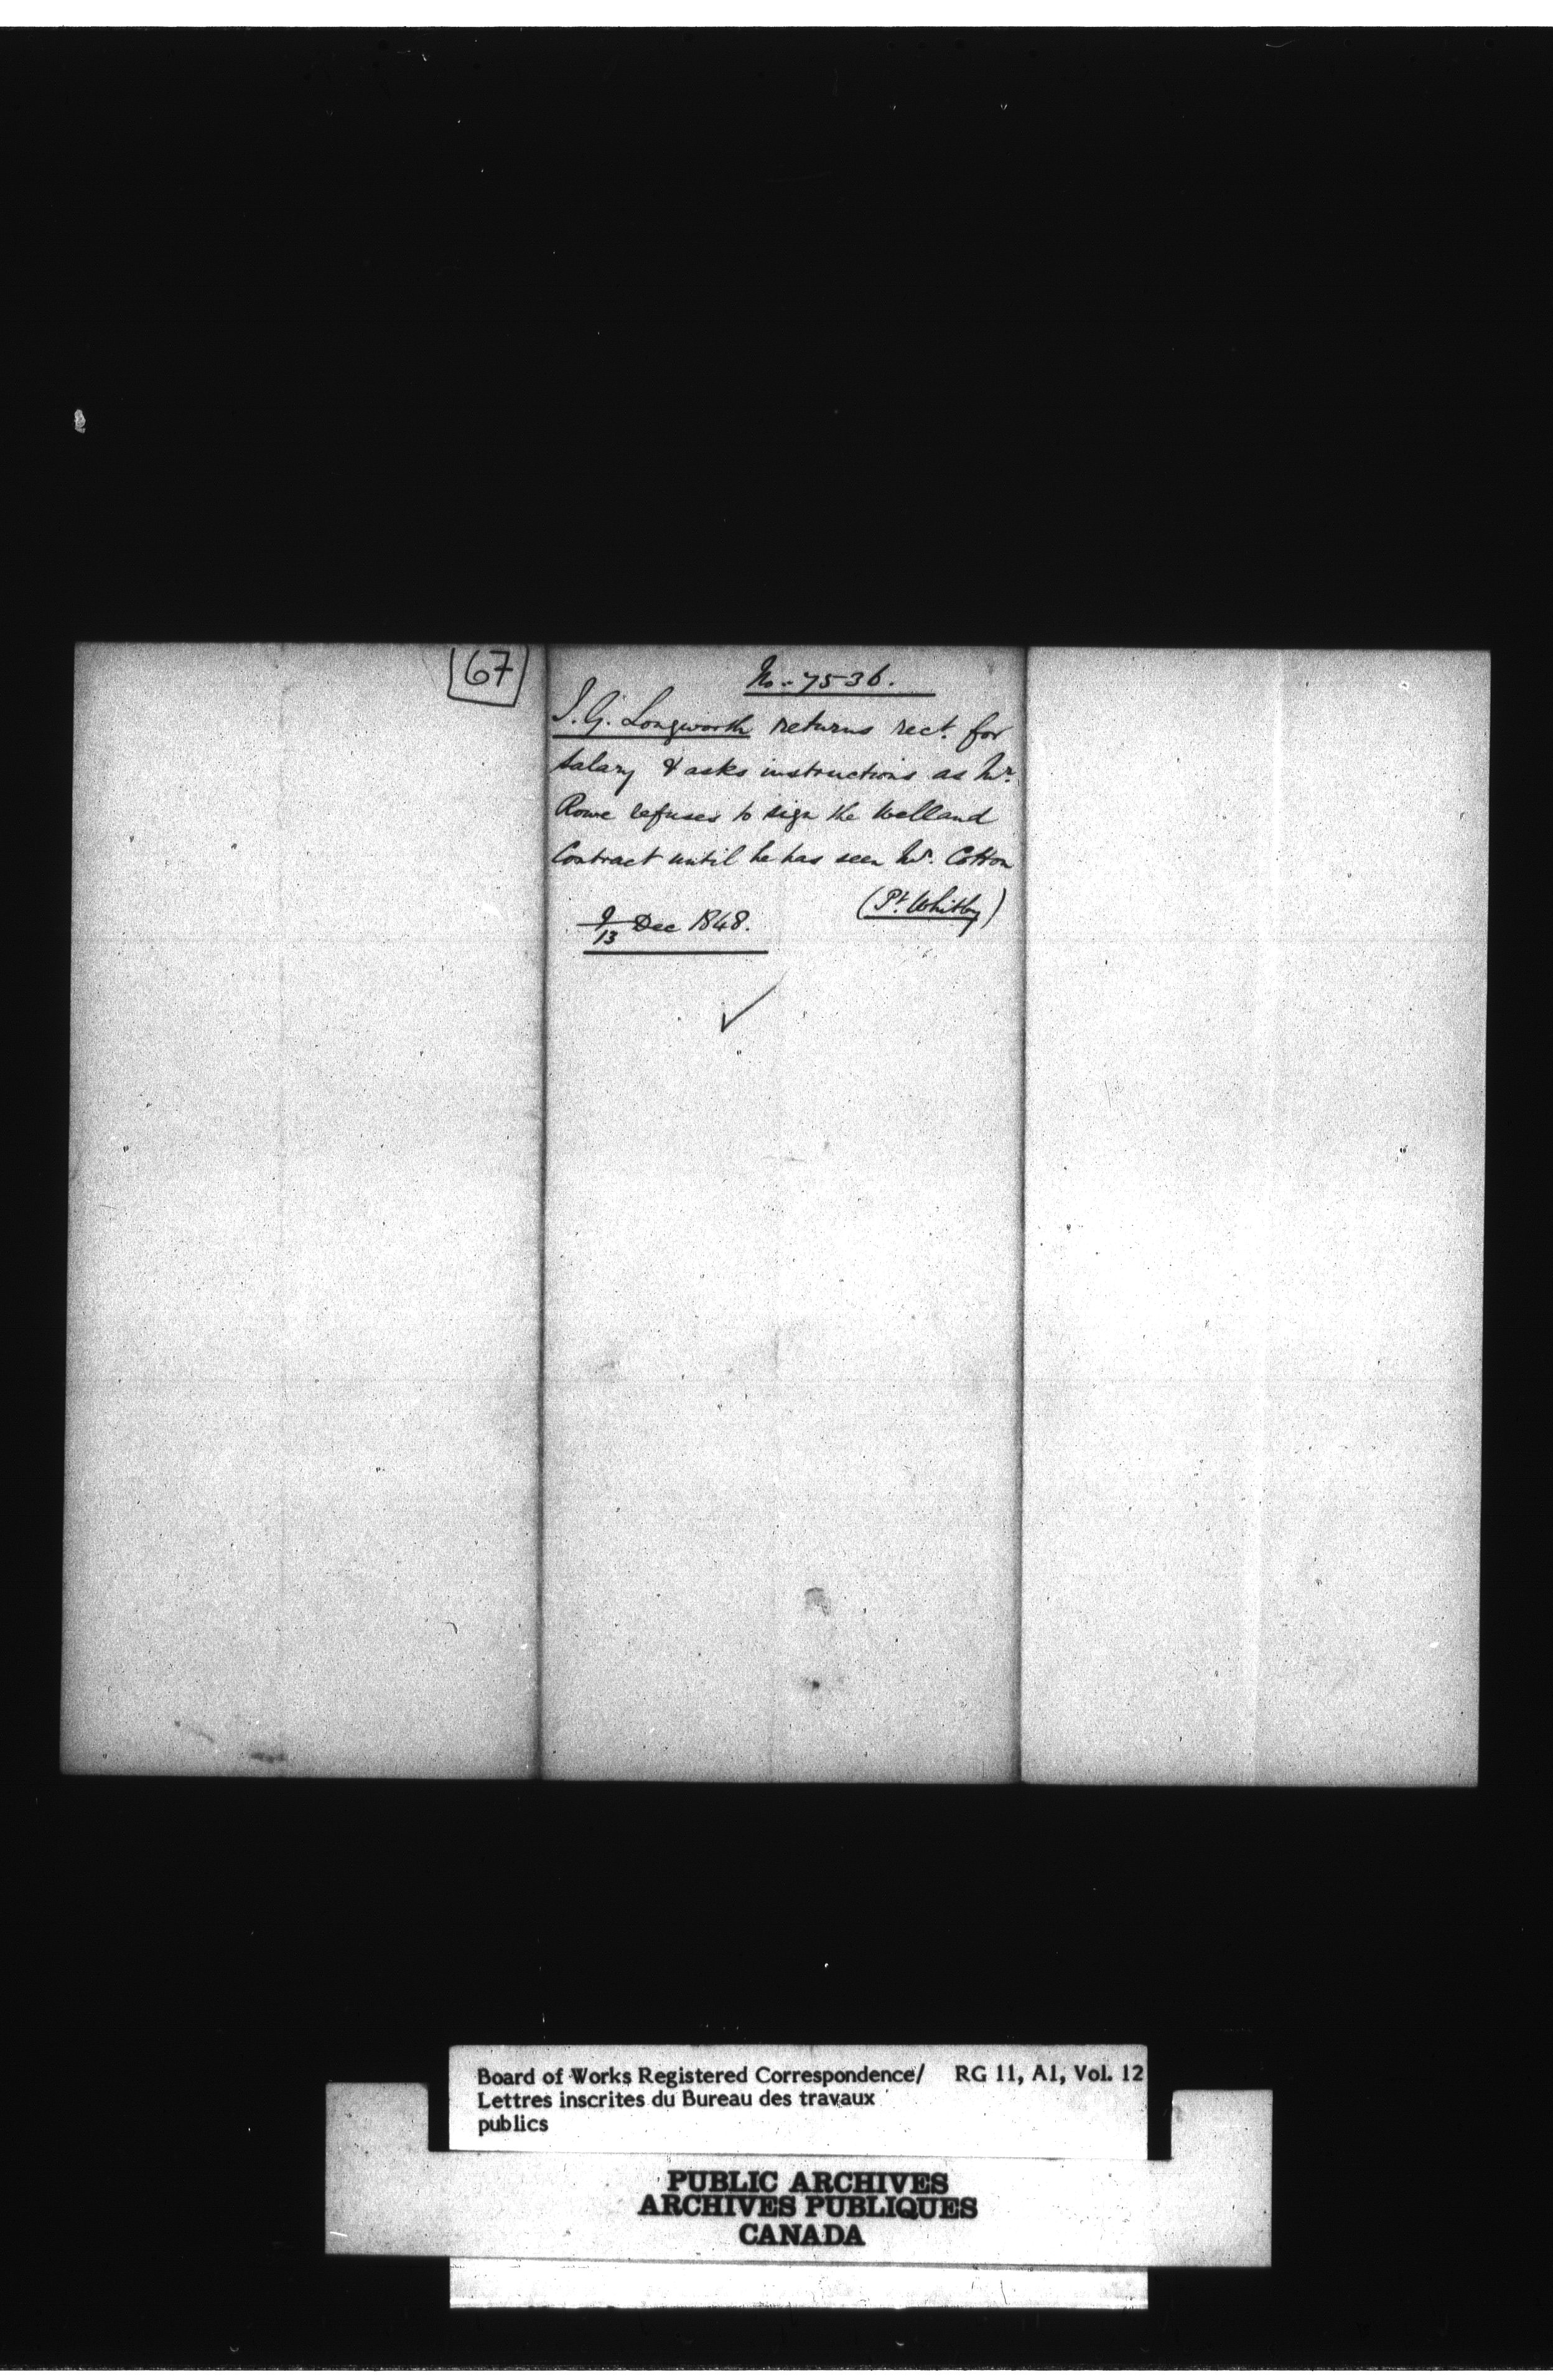 67
No. 7536.
J. G. Longworth returns rect. for
Salary & asks instructions as Mr.
Rowe refuses to sign the Welland
Contract until he has seen Mr. Cotton
(Pt. Whitby)
9/13 Dec 1848.
Board of Works Registered Correspondence/ RG 11, A1, Vol. 12
Lettres inscrites du Bureau des travaux
publics
PUBLIC ARCHIVES
ARCHIVES PUBLIQUES
CANADA